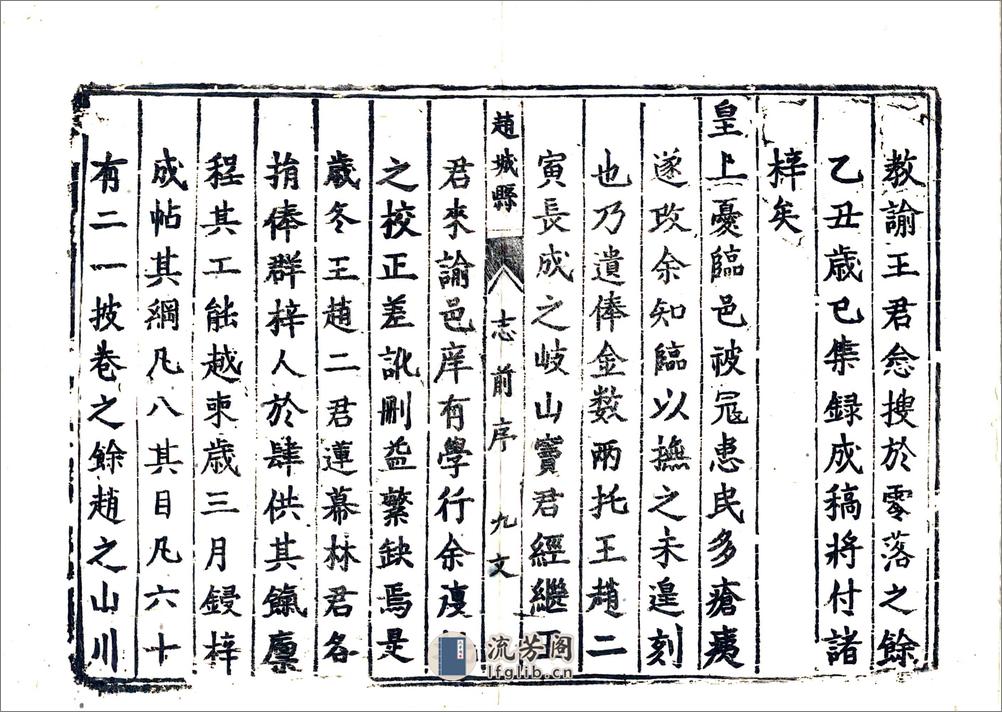 教諭王君忩搜於零落之餘
乙丑歲已集録成稿將付諸
梓矣
皇上憂臨邑被冦患民多瘡痍
遂改余知臨以撫之未遑刻
也乃遺俸金数兩托王趙二
寅長成之岐山竇君經繼丁
趙城縣 志前序 九 文
君來諭邑庠有學行余復
之挍正差訛刪益繁缺焉是
歲冬王趙二君蓮幕林君各
捐俸群梓人於肆供其餼廪
程其工能越柬歳三月鋟梓
成帖其綱凡八其目凡六十
有二一披卷之餘趙之山川
流芳阁
lfglib.cn